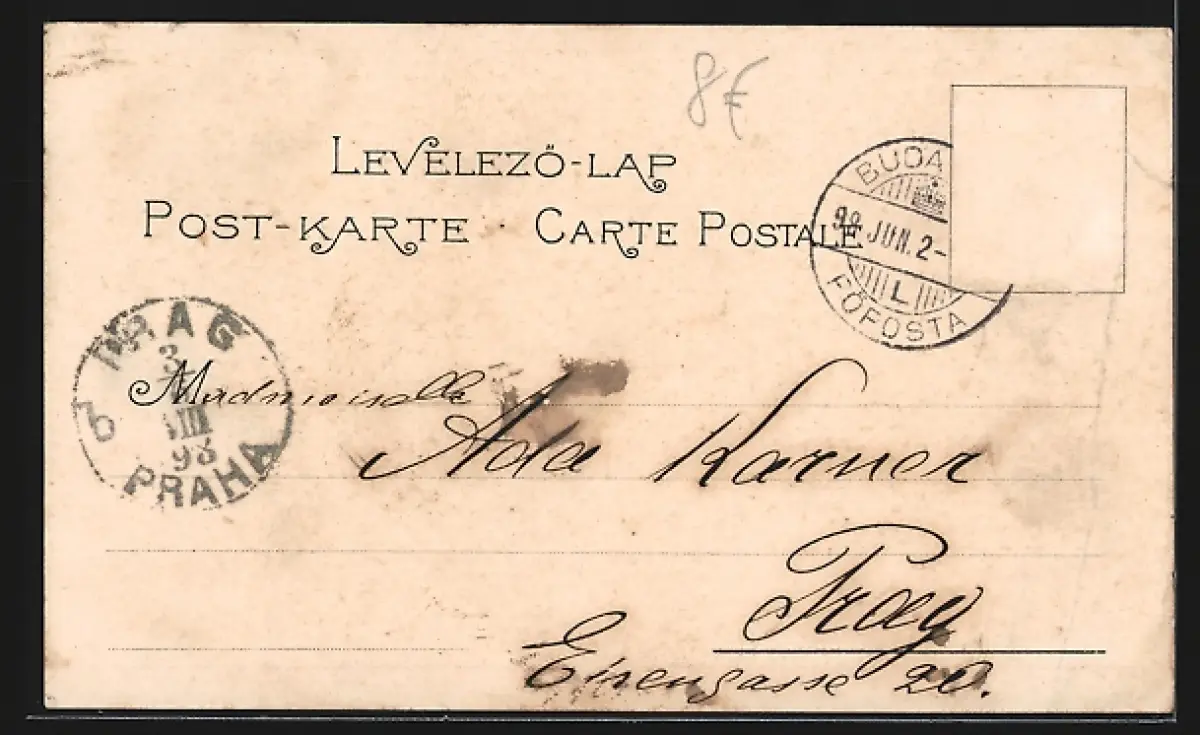 8€
LEVELEZŐ-LAP
POST-KARTE · CARTE POSTALE
BUDA
98. JUN. 2-
L
FŐPOSTA
PRAG
3
VIII
98
PRAHA
Mademoiselle
Ada Karner
Prag
Eisengasse 20.